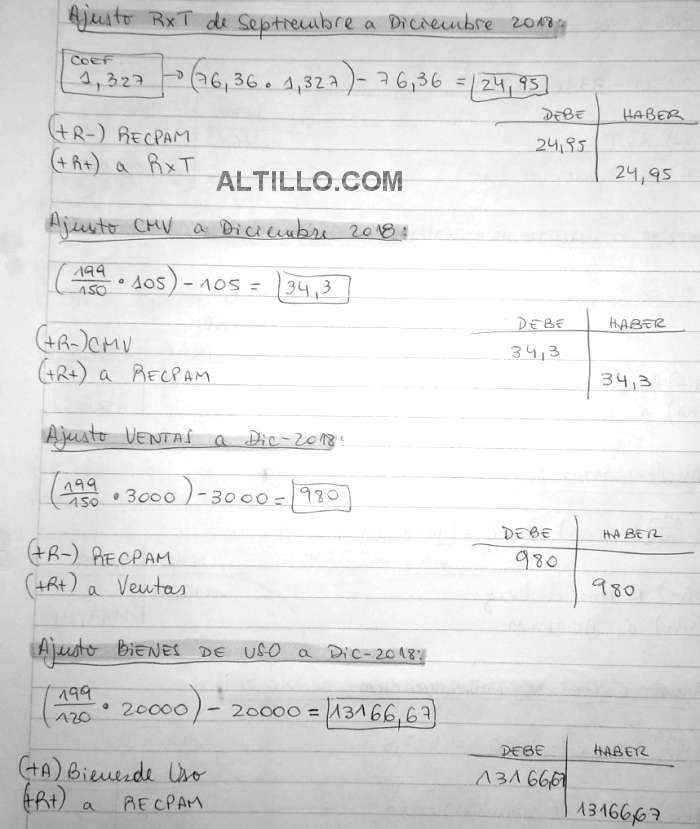 Ajusto RxT de Septiembre a Diciembre 2018:
COEF
1,327 → (76,36 • 1,327) - 76,36 = 24,95
DEBE HABER
(+R-) RECPAM 24,95
(+R+) a RxT 24,95
ALTILLO.COM
Ajusto CMV a Diciembre 2018:
(199/150 • 105) - 105 = 34,3
DEBE HABER
(+R-) CMV 34,3
(+R+) a RECPAM 34,3
Ajusto VENTAS a Dic-2018:
(199/150 • 3000) - 3000 = 980
DEBE HABER
(+R-) RECPAM 980
(+R+) a Ventas 980
Ajusto BIENES DE USO a Dic-2018:
(199/120 • 20000) - 20000 = 13166,67
DEBE HABER
(+A) Bienes de Uso 13166,67
(+R+) a RECPAM 13166,67